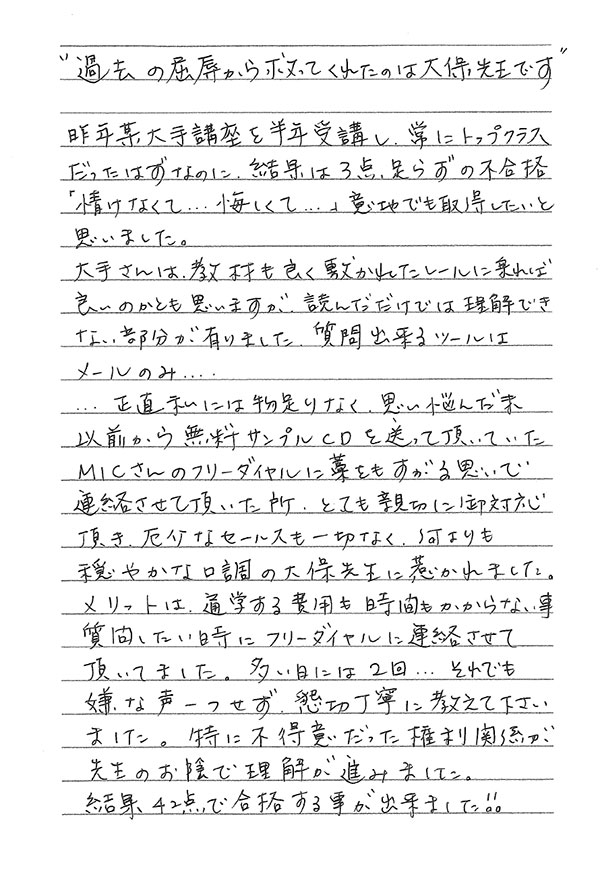 "過去の屈辱から救ってくれたのは大保先生です"
昨年某大手講座を半年受講し、常にトップクラス
だったはずなのに、結果は3点足らずの不合格
「情けなくて…悔しくて…」意地でも取得したいと
思いました。
大手さんは、教材も良く敷かれたレールに乗れば
良いのかとも思いますが、読んだだけでは理解でき
ない部分が有りました。質問出来るツールは
メールのみ‥‥
… 正直私には物足りなく、思い悩んだ末
以前から無料サンプルCDを送って頂いていた
MICさんのフリーダイヤルに藁をもすがる思いで
連絡させて頂いた所、とても親切に御対応
頂き、厄介なセールスも一切なく、何よりも
穏やかな口調の大保先生に惹かれました。
メリットは、通学する費用も時間もかからない事
質問したい時にフリーダイヤルに連絡させて
頂いてました。多い日には2回… それでも
嫌な声一つせず、懇切丁寧に教えて下さい
ました。特に不得意だった権利関係が
先生のお陰で理解が進みました。
結果42点で合格する事が出来ました!!